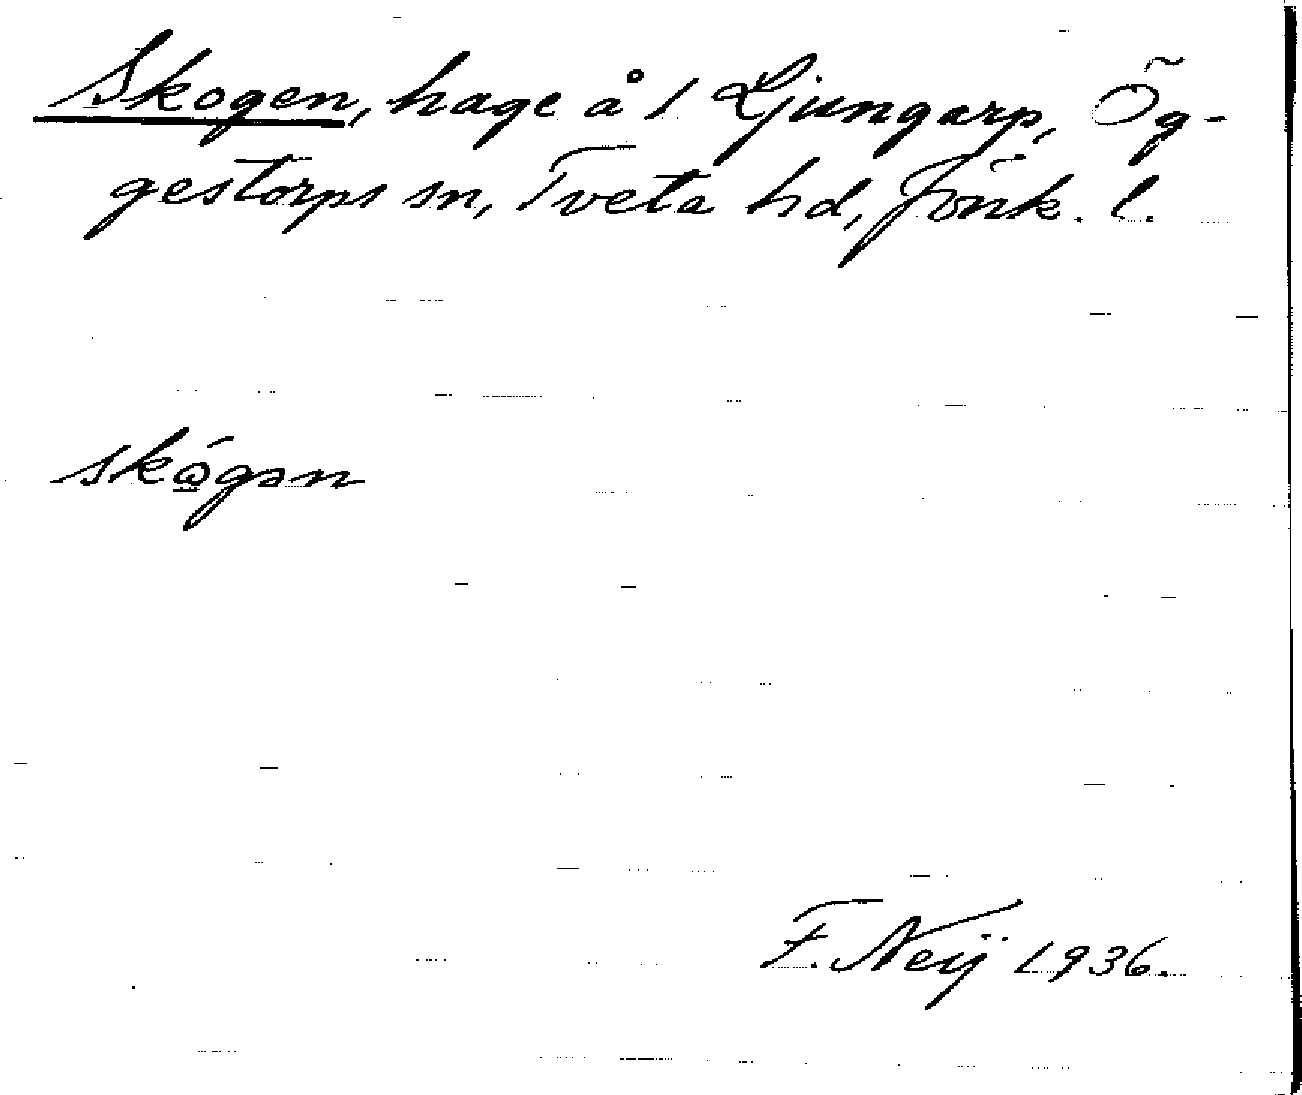 Skogen, hage å 1 Ljungarp, Ög-
gestorps sn, Tveta hd, Jönk. l.
skógən
F. Neij 1936.